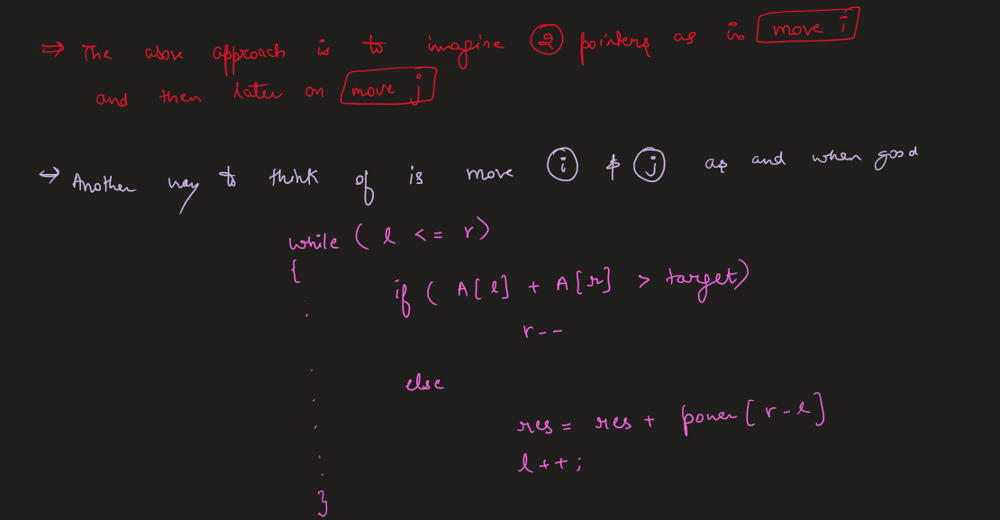 ⇒ The above approach is to imagine 2 pointers as in move i
and then later on move j
→ Another way to think of is move i & j as and when good
while ( l <= r)
{
if ( A[l] + A[r] > target)
r--
else
res = res + power[r-l]
l++;
}